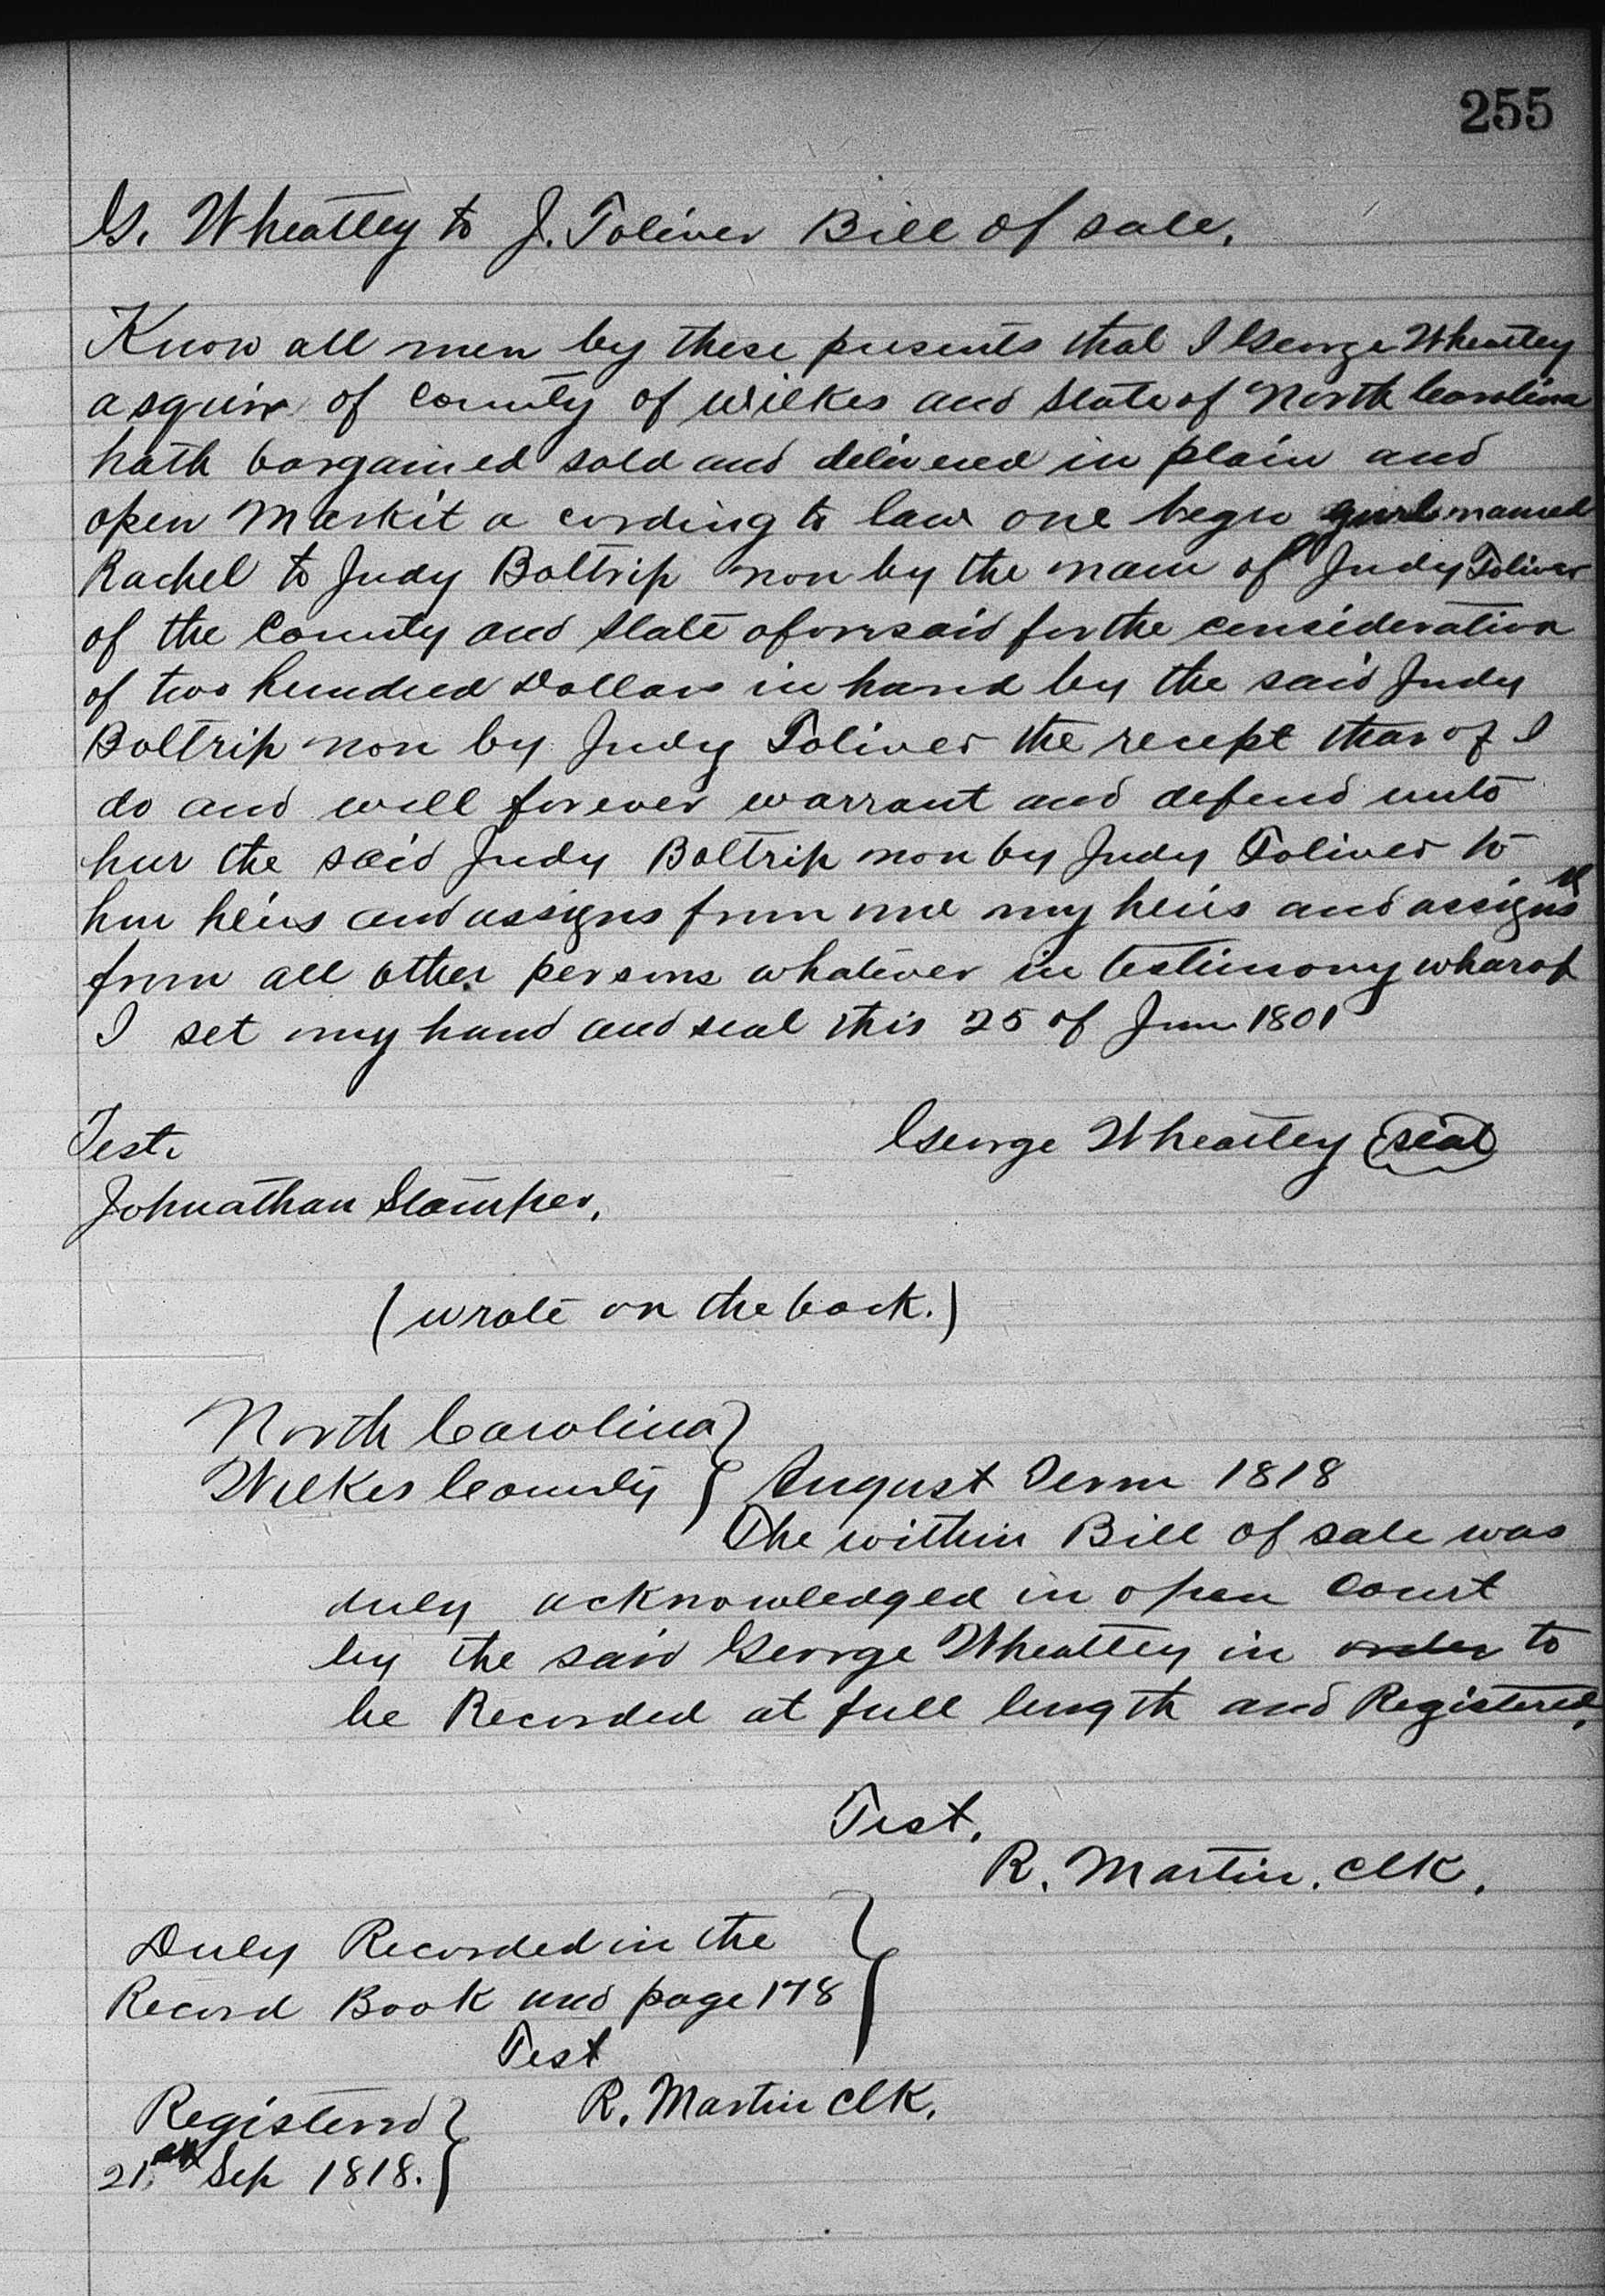 255
G. Wheatley to J. Toliver Bill of sale.
Know all men by these presents that I George Wheatley
asquir of County of Wilkes and State of North Carolina
hath bargained sold and delivered in plain and
open Markit a cording to law one negro gurl named
Rachel to Judy Boltrip non by the nam of Judy Toliver
of the County and State aforesaid for the consideration
of two hundred Dollars in hand by the said Judy
Boltrip non by Judy Toliver the recept thar of I
do and will forever warrant and defend unto
hur the said Judy Boltrip non by Judy Toliver to
hur heirs and assigns from me my heirs and assigns &
from all other persons whatever in testimony wharof
I set my hand and seal this 25 of Jun 1801
Test. George Wheatley (seal)
Johnathan Stamper.
(wrote on the back.)
North Carolina }
Wilkes County } August Term 1818
The within Bill of sale was
duly acknowledged in open Court
by the said George Wheatley in order to
be Recorded at full length and Registered.
Test.
R. Martin. Clk.
Duly Recorded in the }
Record Book and page 178 }
Test
R. Martin Clk.
Registered }
21st Sep 1818. }